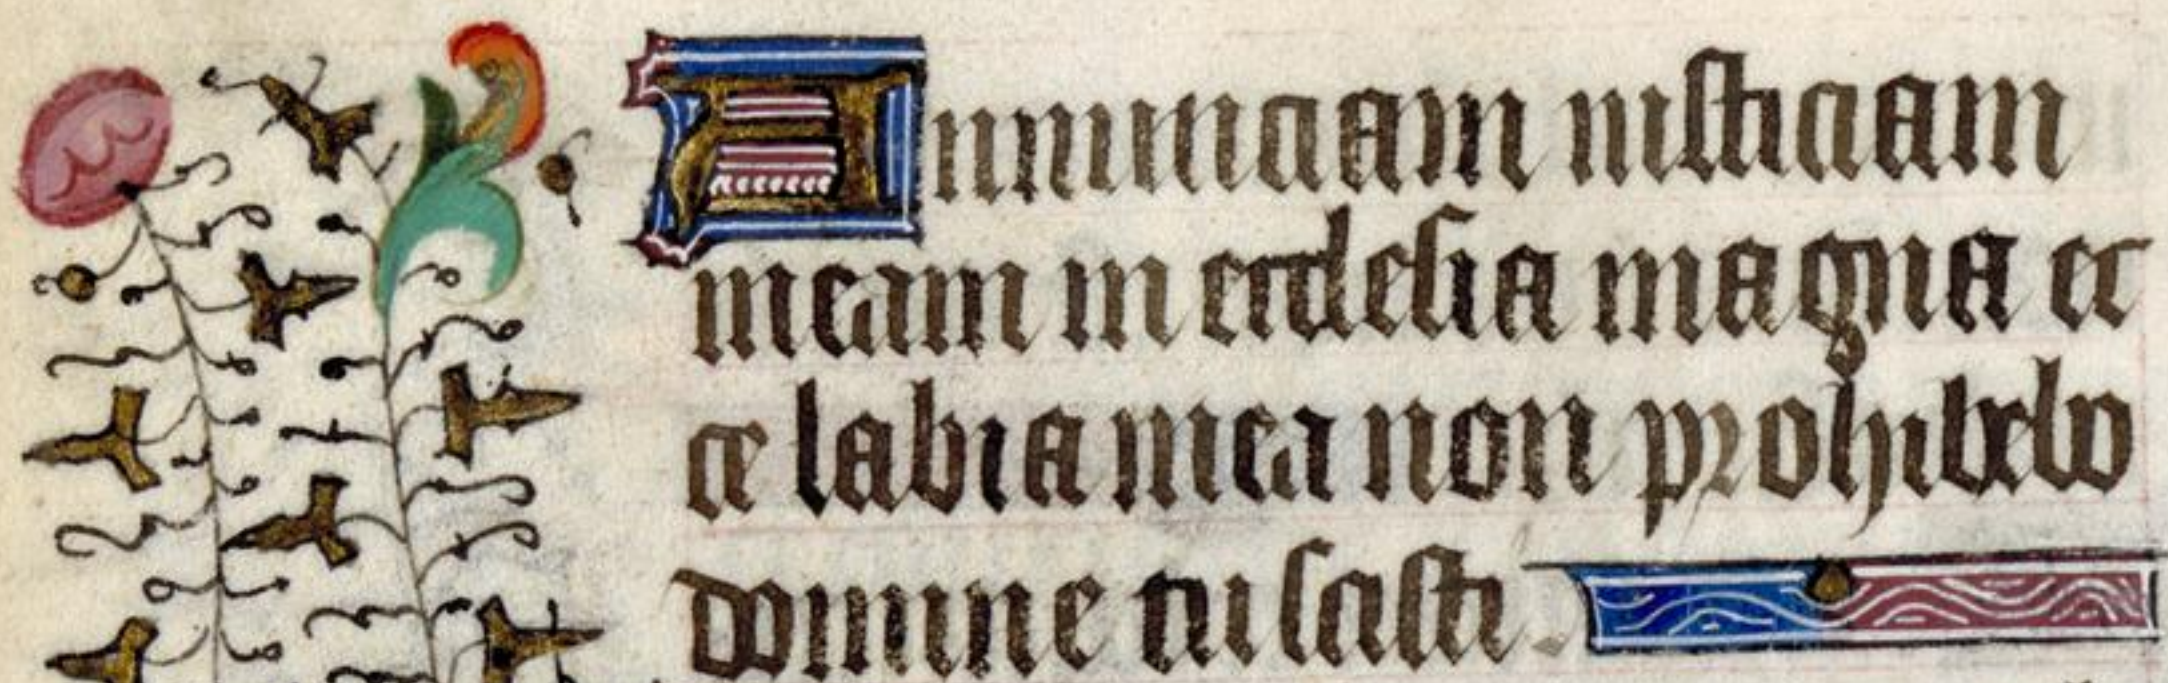 Annunciam iusticiam
meam in ecclesia magna ec
ce labia mea non prohibebo
domine tu scisti.